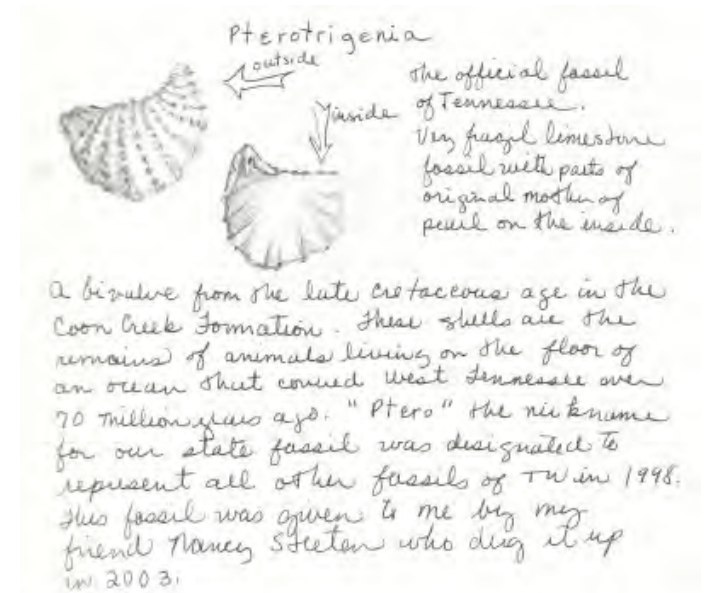 Pterotrigenia
outside
inside
the official fossil
of Tennessee.
Very fragil limestone
fossil with parts of
original mother of
pearl on the inside.
A bivalve from the late cretaceous age in the
Coon Creek Formation. These shells are the
remains of animals living on the floor of
an ocean that covered West Tennessee over
70 million years ago. "Ptero" the nickname
for our state fossil was designated to
represent all other fossils of TN in 1998.
This fossil was given to me by my
friend Nancy who dug it up
in 2003.